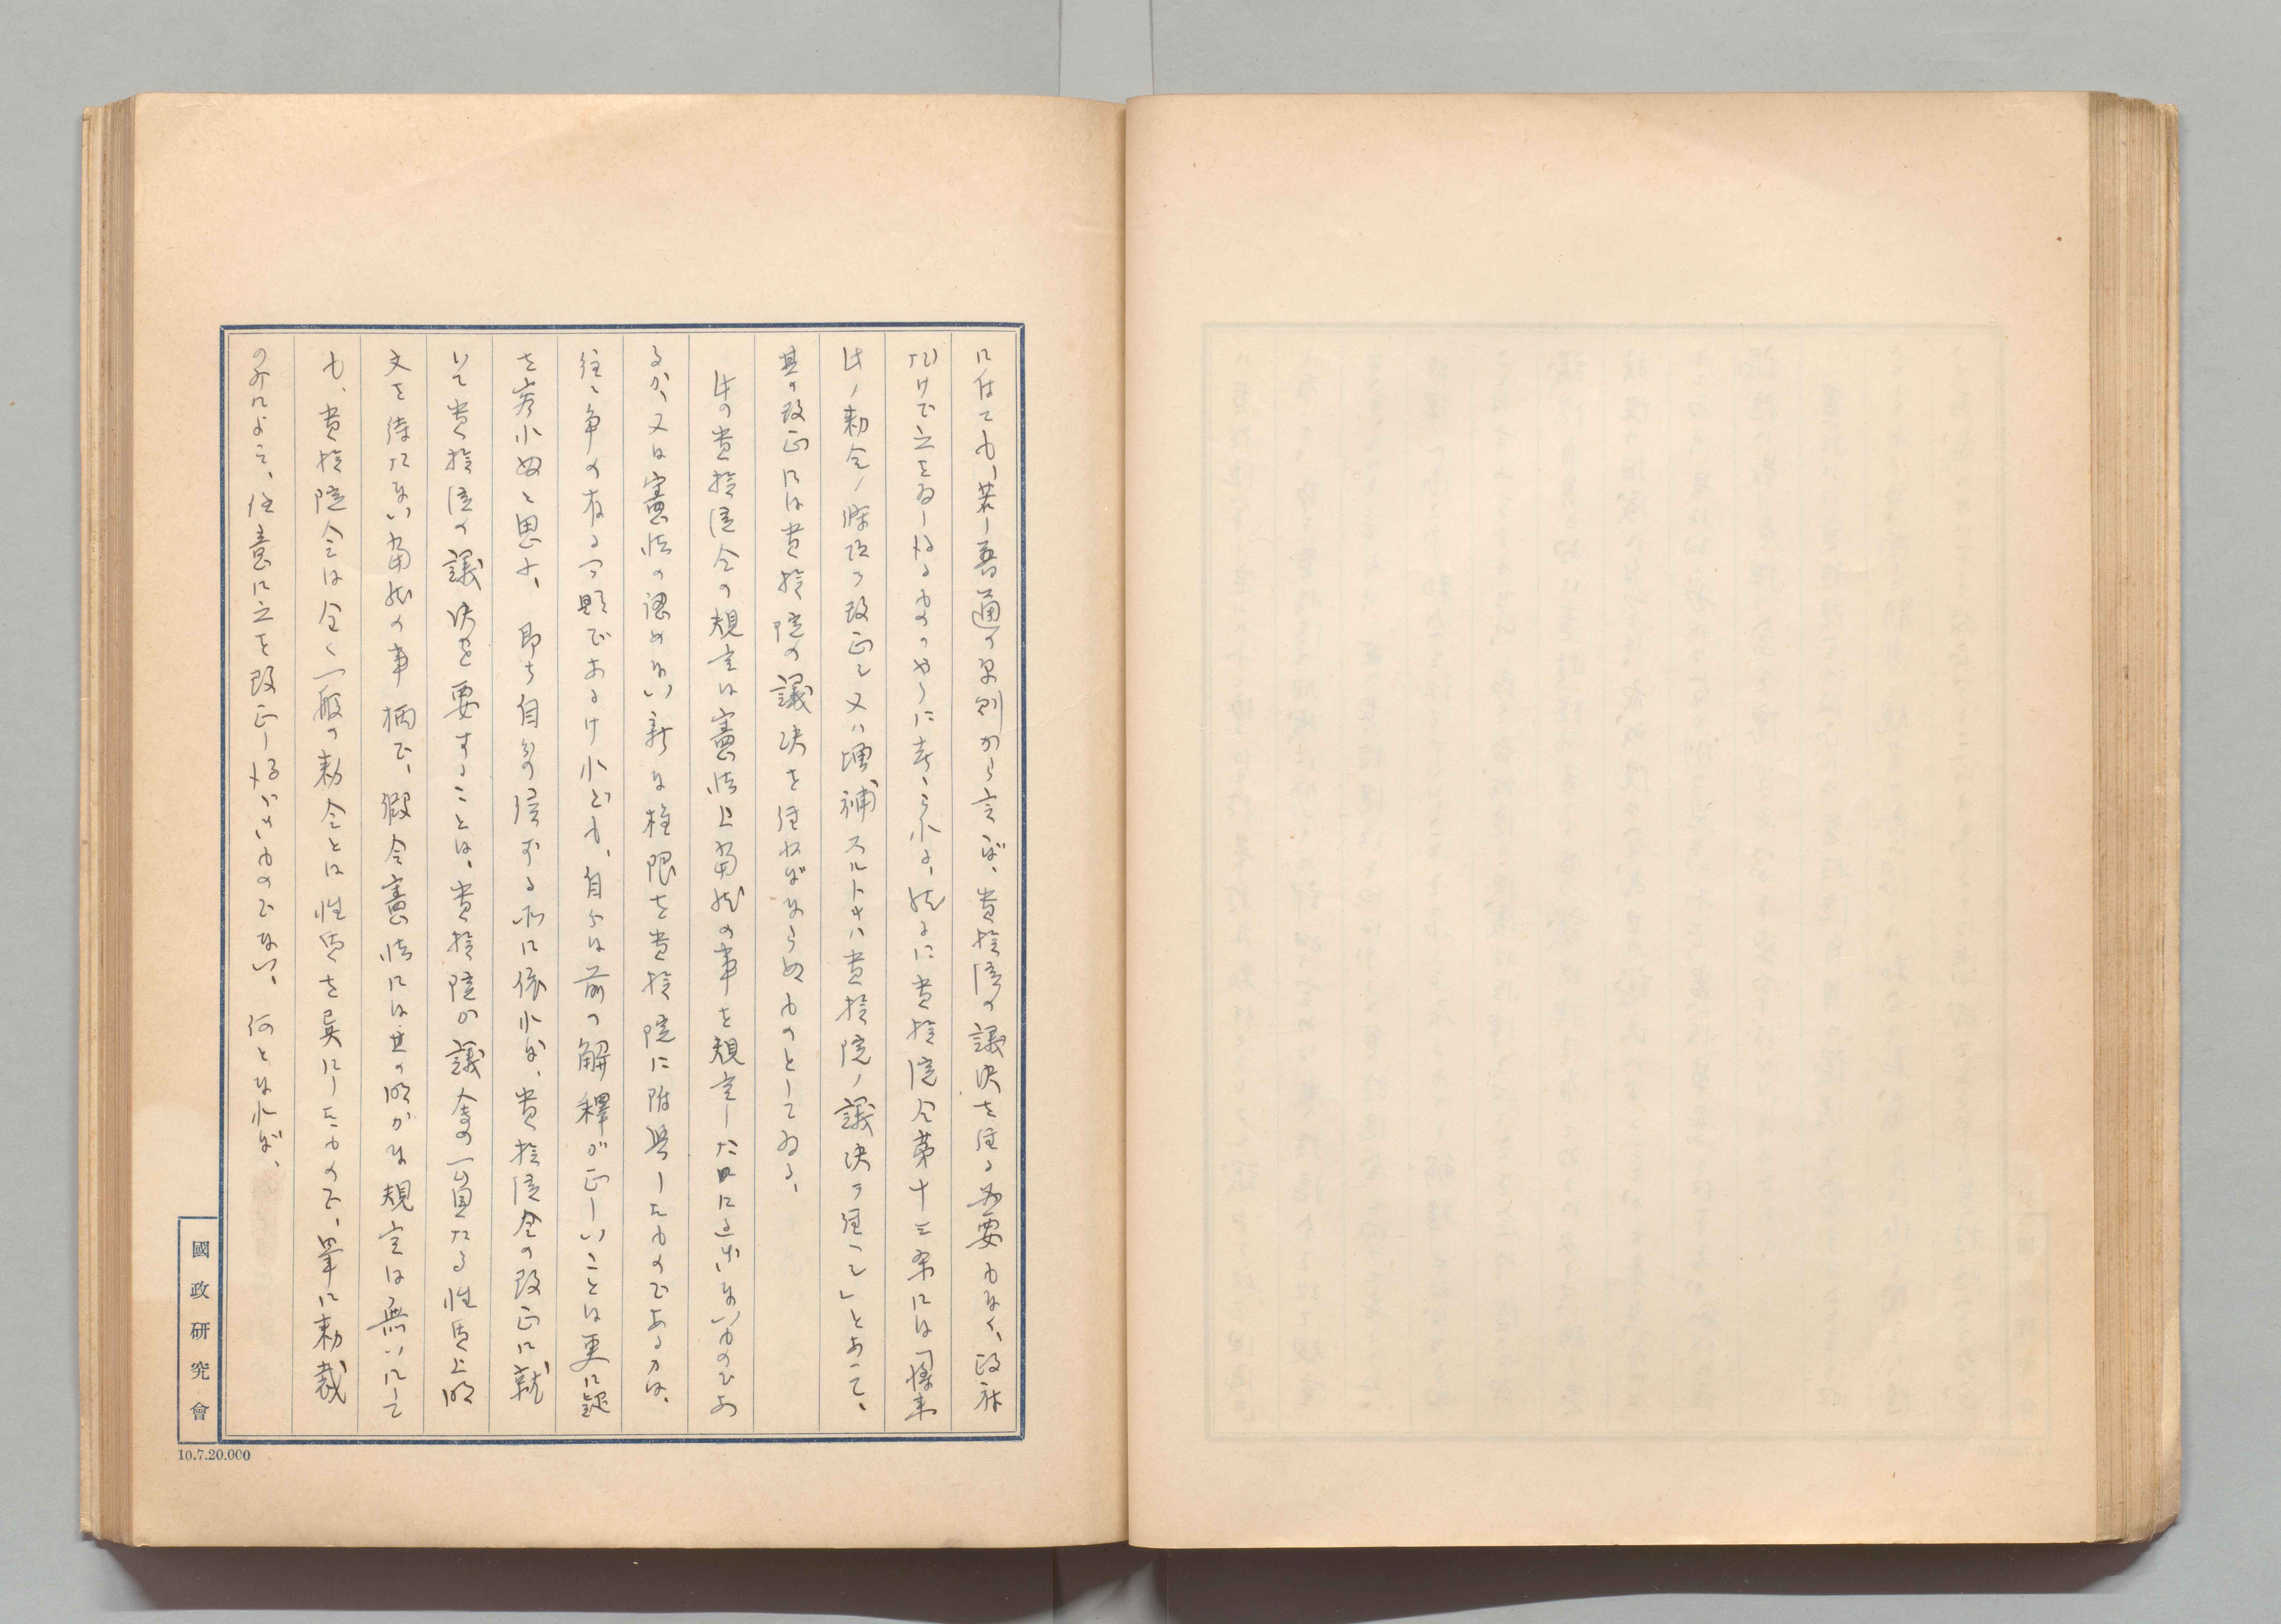 に付ても、若し普通の原則から言へば、貴族院の議決を経る必要もなく、政府
だけで之を為し得るものゝやうに考へられる、然るに貴族院令第十三条には「将来
此ノ勅令ノ條項ヲ改正シ又ハ増補スルトキハ貴族院ノ議決ヲ経ヘシ」とあつて、
其の改正には貴族院の議決を経ねばならぬものとしてゐる、
此の貴族院令の規定は憲法上当然の事を規定したに過ぎないものであ
るか、又は憲法の認めない新な権限を貴族院に附与したものであるかは、
往々争の有る問題であるけれども、自分は前の解釋が正しいことは更に疑
を容れぬと思ふ、即ち自分の信ずる所に依れば、貴族院令の改正に就
いて貴族院の議決を要することは、貴族院が議会の一員たる性質上明
文を待たない当然の事柄で、假令憲法には其の明かな規定は無いにして
も、貴族院令は全く一般の勅令とは性質を異にしたもので、単に勅裁
のみによつて、任意に之を改正し得べきものでない、何となれば、
國政研究會
10.7.20.000